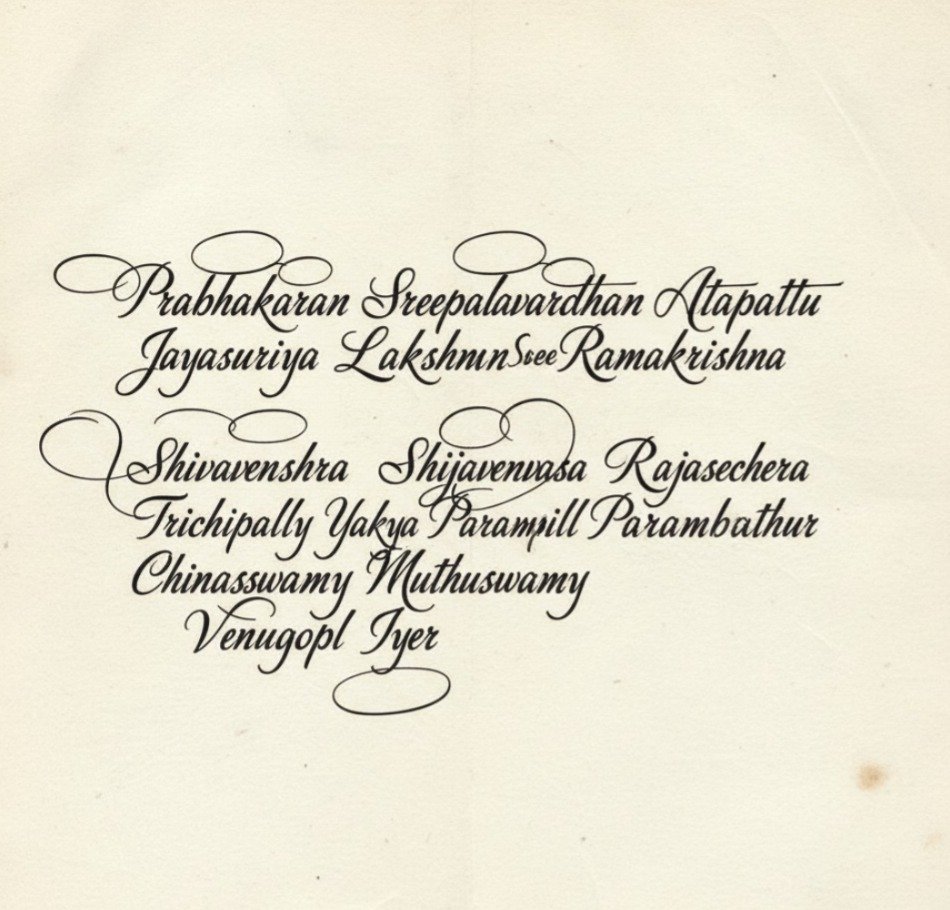 Prabhakaran Sreepalavardhan Atapattu
Jayasuriya Lakshmn Sree Ramakrishna
Shivavenshra Shijavenvasa Rajasechera
Trichipally Yakya Parampill Parambathur
Chinasswamy Muthuswamy
Venugopl Iyer